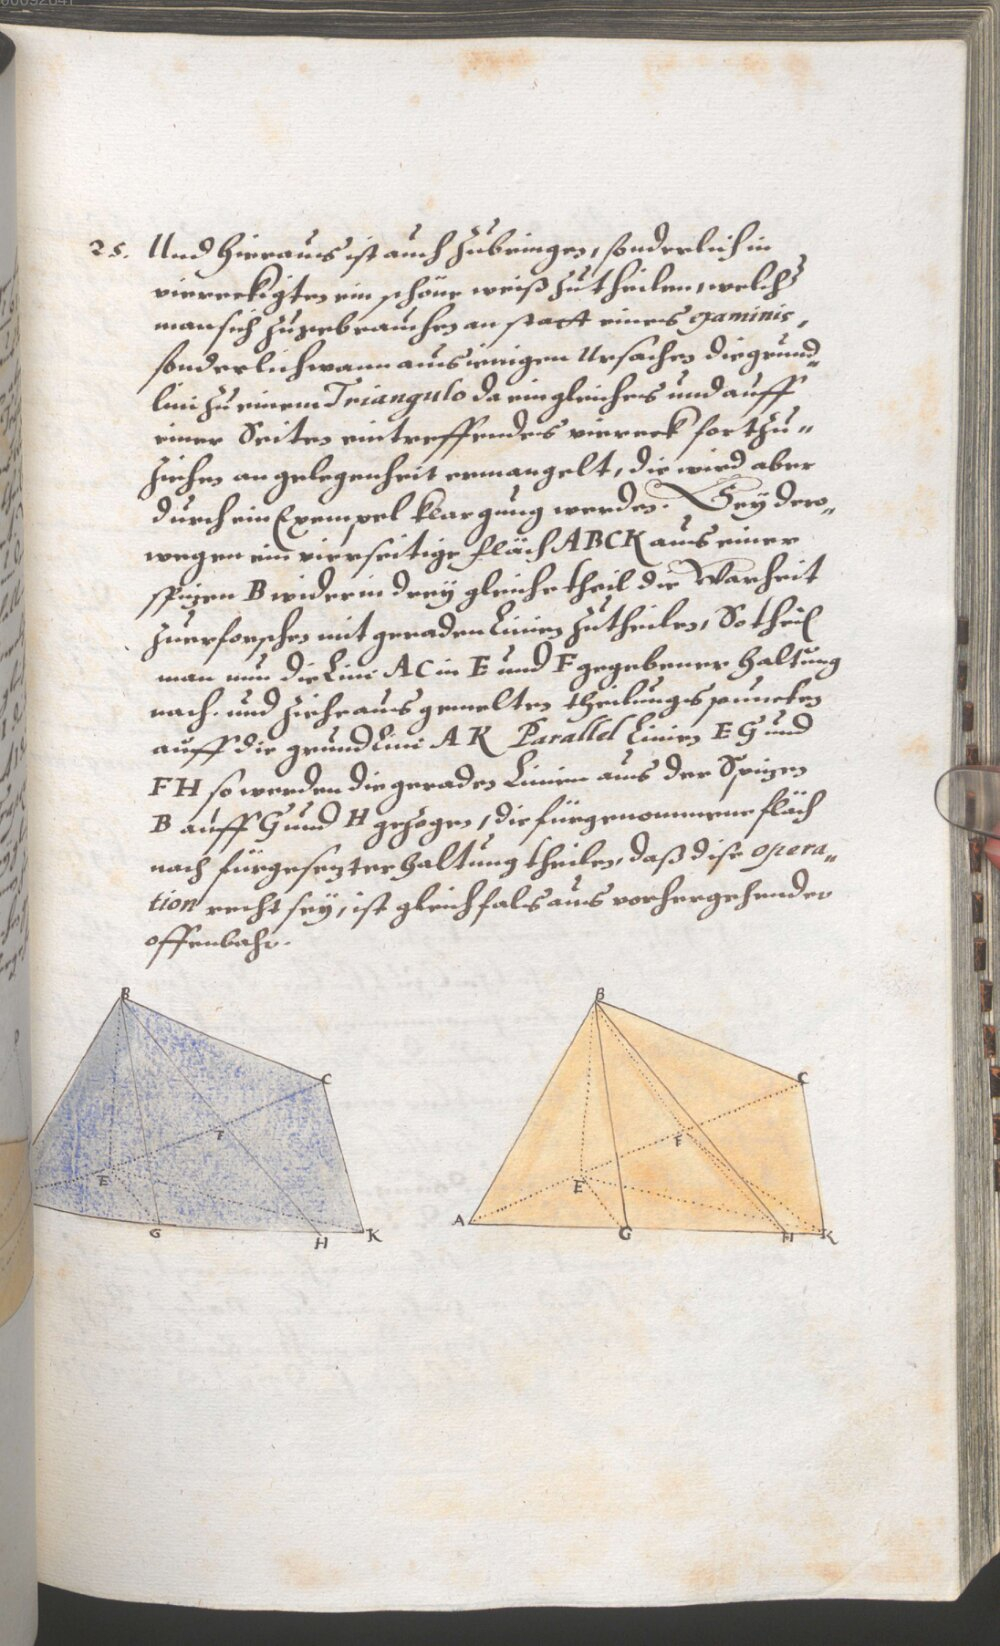 25. Und hieraus ist auch zubringen, sonderlich in
viereckigten ein schöne weiß zutheilen, welche
man sich zugebrauchen an statt eines examinis,
sonderlich wann aus einigen Ursachen die grund„
lini zu einem Triangulo da ein gleiches und auff
einer Seiten eintreffendes viereck fort zu„
ziehen an gelegenheit ermangelt, die wird aber
durch ein Exempel klar gnung werden. Sey dero„
wegen ein vierseitige fläch ABCK aus einer
spizen B wider in drey gleiche theil die Warheit
zuerforschen mit geraden Linien zutheilen, So theil
man nun die Lini AC in E und F gegebener haltung
nach. und ziehe aus gemelten theilungs puncten
auff die grund Lini AK Parallel Linien EG und
FH so werden die geraden Linien aus der Spizen
B auff G und H gezogen, die fürgenommene fläch
nach fürgesezter haltung theilen, daß dise opera„
tion recht sey, ist gleichfals aus vorhergehender
offenbahr.
B
C
F
E
G
H
K
B
C
F
E
A
G
H
K